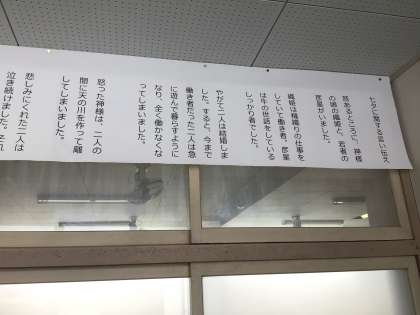 七夕に関する言い伝え
昔あるところに、神様
の娘の織姫と、若者の
彦星がいました。
織姫は機織りの仕事を
していて働き者、彦星
は牛の世話をしている
しっかり者でした。
やがて二人は結婚しま
した。すると、今まで
働き者だった二人は急
に遊んで暮らすように
なり、全く働かなくな
ってしまいました。
怒った神様は、二人の
間に天の川を作って離
してしまいました。
悲しみにくれた二人は
泣き続けました。それ